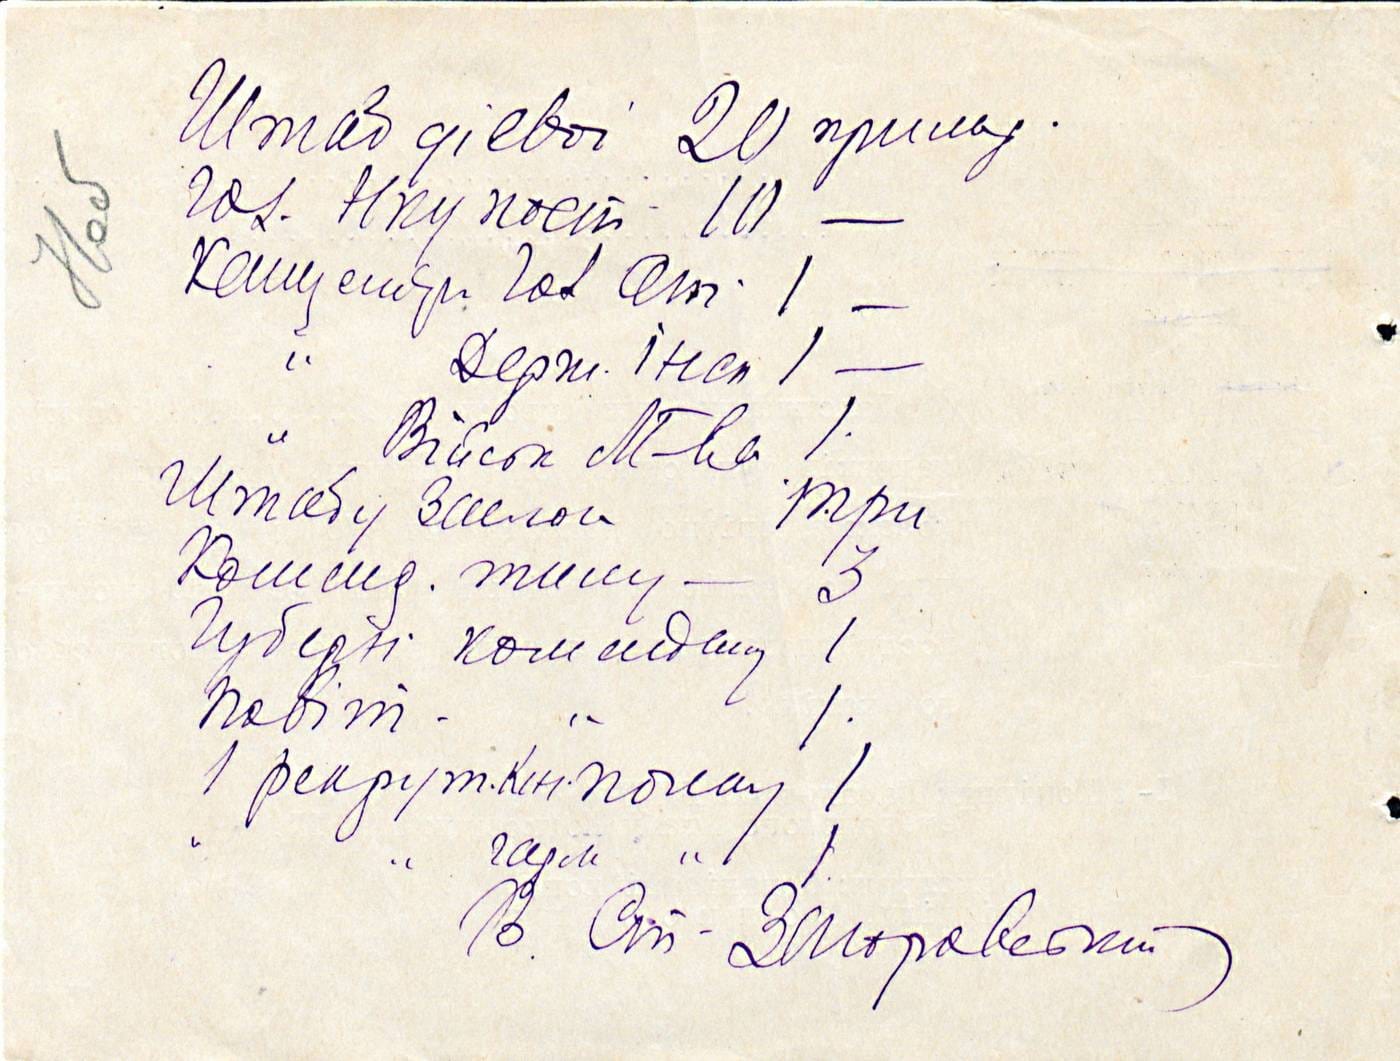 Штаб дієвої 20 примір.
Гол. Нкупост 10 —
Канцелярі Гол От. 1 —
" Держ. Інсп 1 —
" Військ М-ва 1.
Штабу Запасн три
Команд. тилу — 3
Губерні коменданту 1
Повіт. " 1.
1 рекрут. Кін. полку 1
" " гарм " 1
В. От.